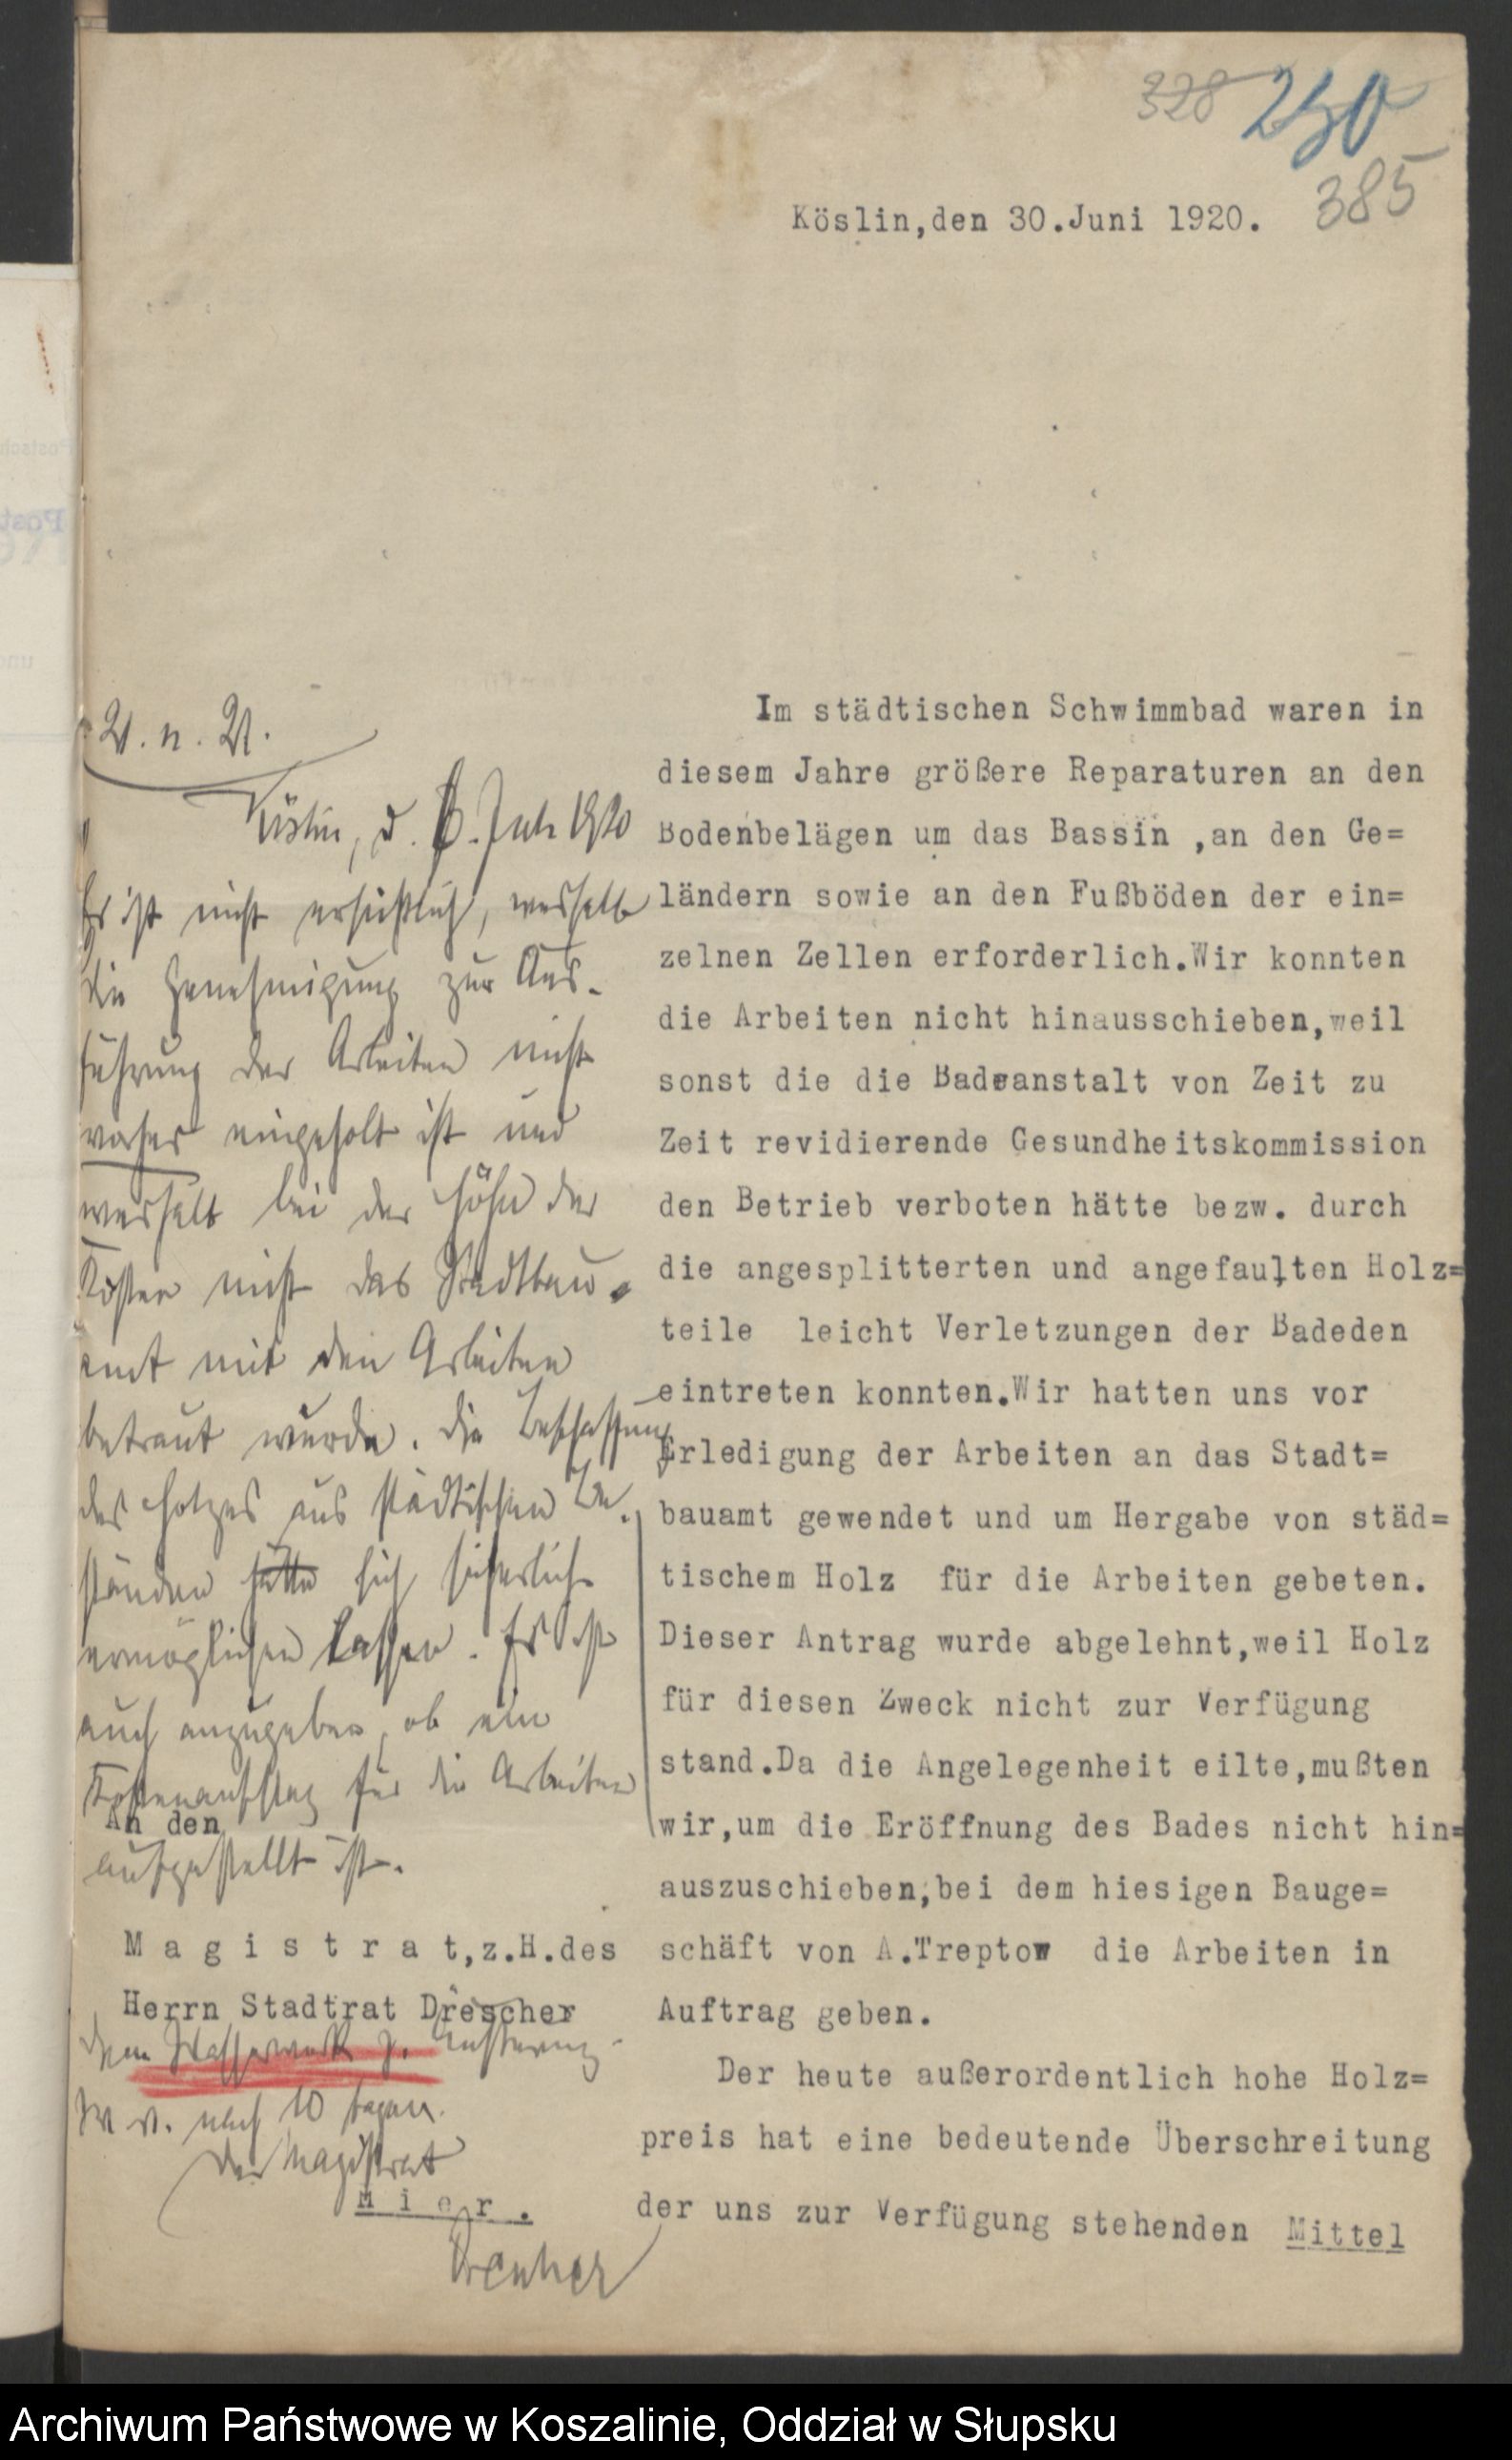 328 250
385
Köslin,den 30.Juni 1920.
Im städtischen Schwimmbad waren in
diesem Jahre größere Reparaturen an den
Bodenbelägen um das Bassin ,an den Ge=
ländern sowie an den Fußböden der ein=
zelnen Zellen erforderlich.Wir konnten
die Arbeiten nicht hinausschieben,weil
sonst die die Badeanstalt von Zeit zu
Zeit revidierende Gesundheitskommission
den Betrieb verboten hätte bezw. durch
die angesplitterten und angefaulten Holz=
teile leicht Verletzungen der Badeden
eintreten konnten.Wir hatten uns vor
Erledigung der Arbeiten an das Stadt=
bauamt gewendet und um Hergabe von städ=
tischem Holz für die Arbeiten gebeten.
Dieser Antrag wurde abgelehnt,weil Holz
für diesen Zweck nicht zur Verfügung
stand.Da die Angelegenheit eilte,mußten
wir,um die Eröffnung des Bades nicht hin=
auszuschieben,bei dem hiesigen Bauge=
schäft von A.Treptow die Arbeiten in
Auftrag geben.
Der heute außerordentlich hohe Holz=
preis hat eine bedeutende Überschreitung
der uns zur Verfügung stehenden Mittel
U. n. U.
Köslin, d. Juli 1920
Es ist nicht ersichtlich, weshalb
die Genehmigung zur Aus-
führung der Arbeiten nicht
vorher eingeholt ist und
weshalb bei der Höhe der
Kosten nicht das Stadtbau-
amt mit den Arbeiten
betraut wurde. Die Beschaffung
des Holzes aus städtischen Be-
ständen hätte sich sicherlich
ermöglichen lassen. Es ist
auch anzugeben, ob ein
Kostenanschlag für die Arbeiten
aufgestellt ist.
An den
M a g i s t r a t,z.H.des
Herrn Stadtrat Drescher
H i e r .
Dem Wasserwerk z. Äußerung
W. v. nach 10 Tagen.
Der Magistrat
Drescher
Archiwum Państwowe w Koszalinie, Oddział w Słupsku